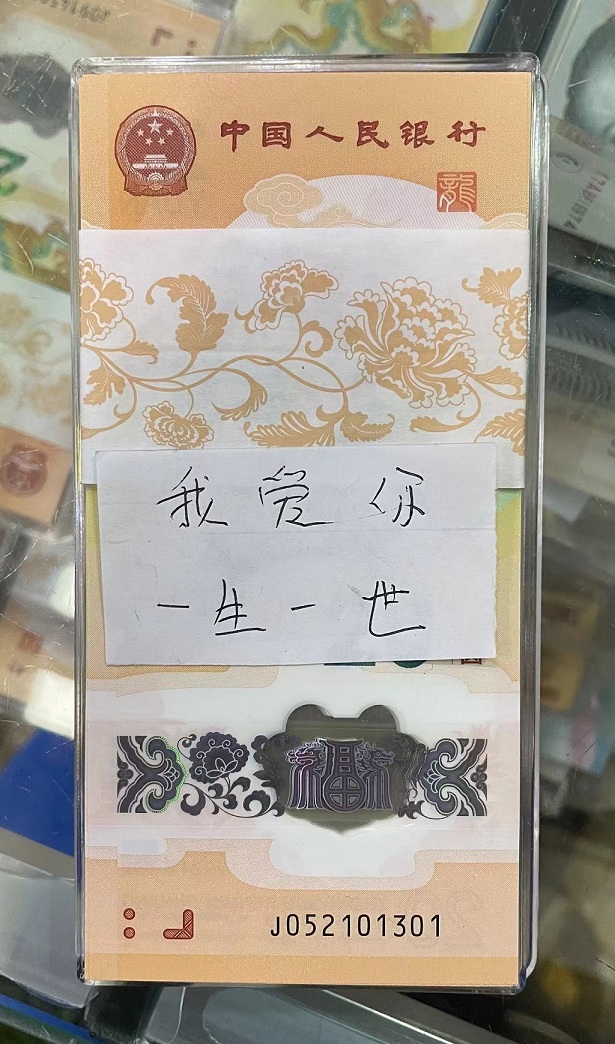 中国人民银行
龍
我爱你
一生一世
福
J052101301